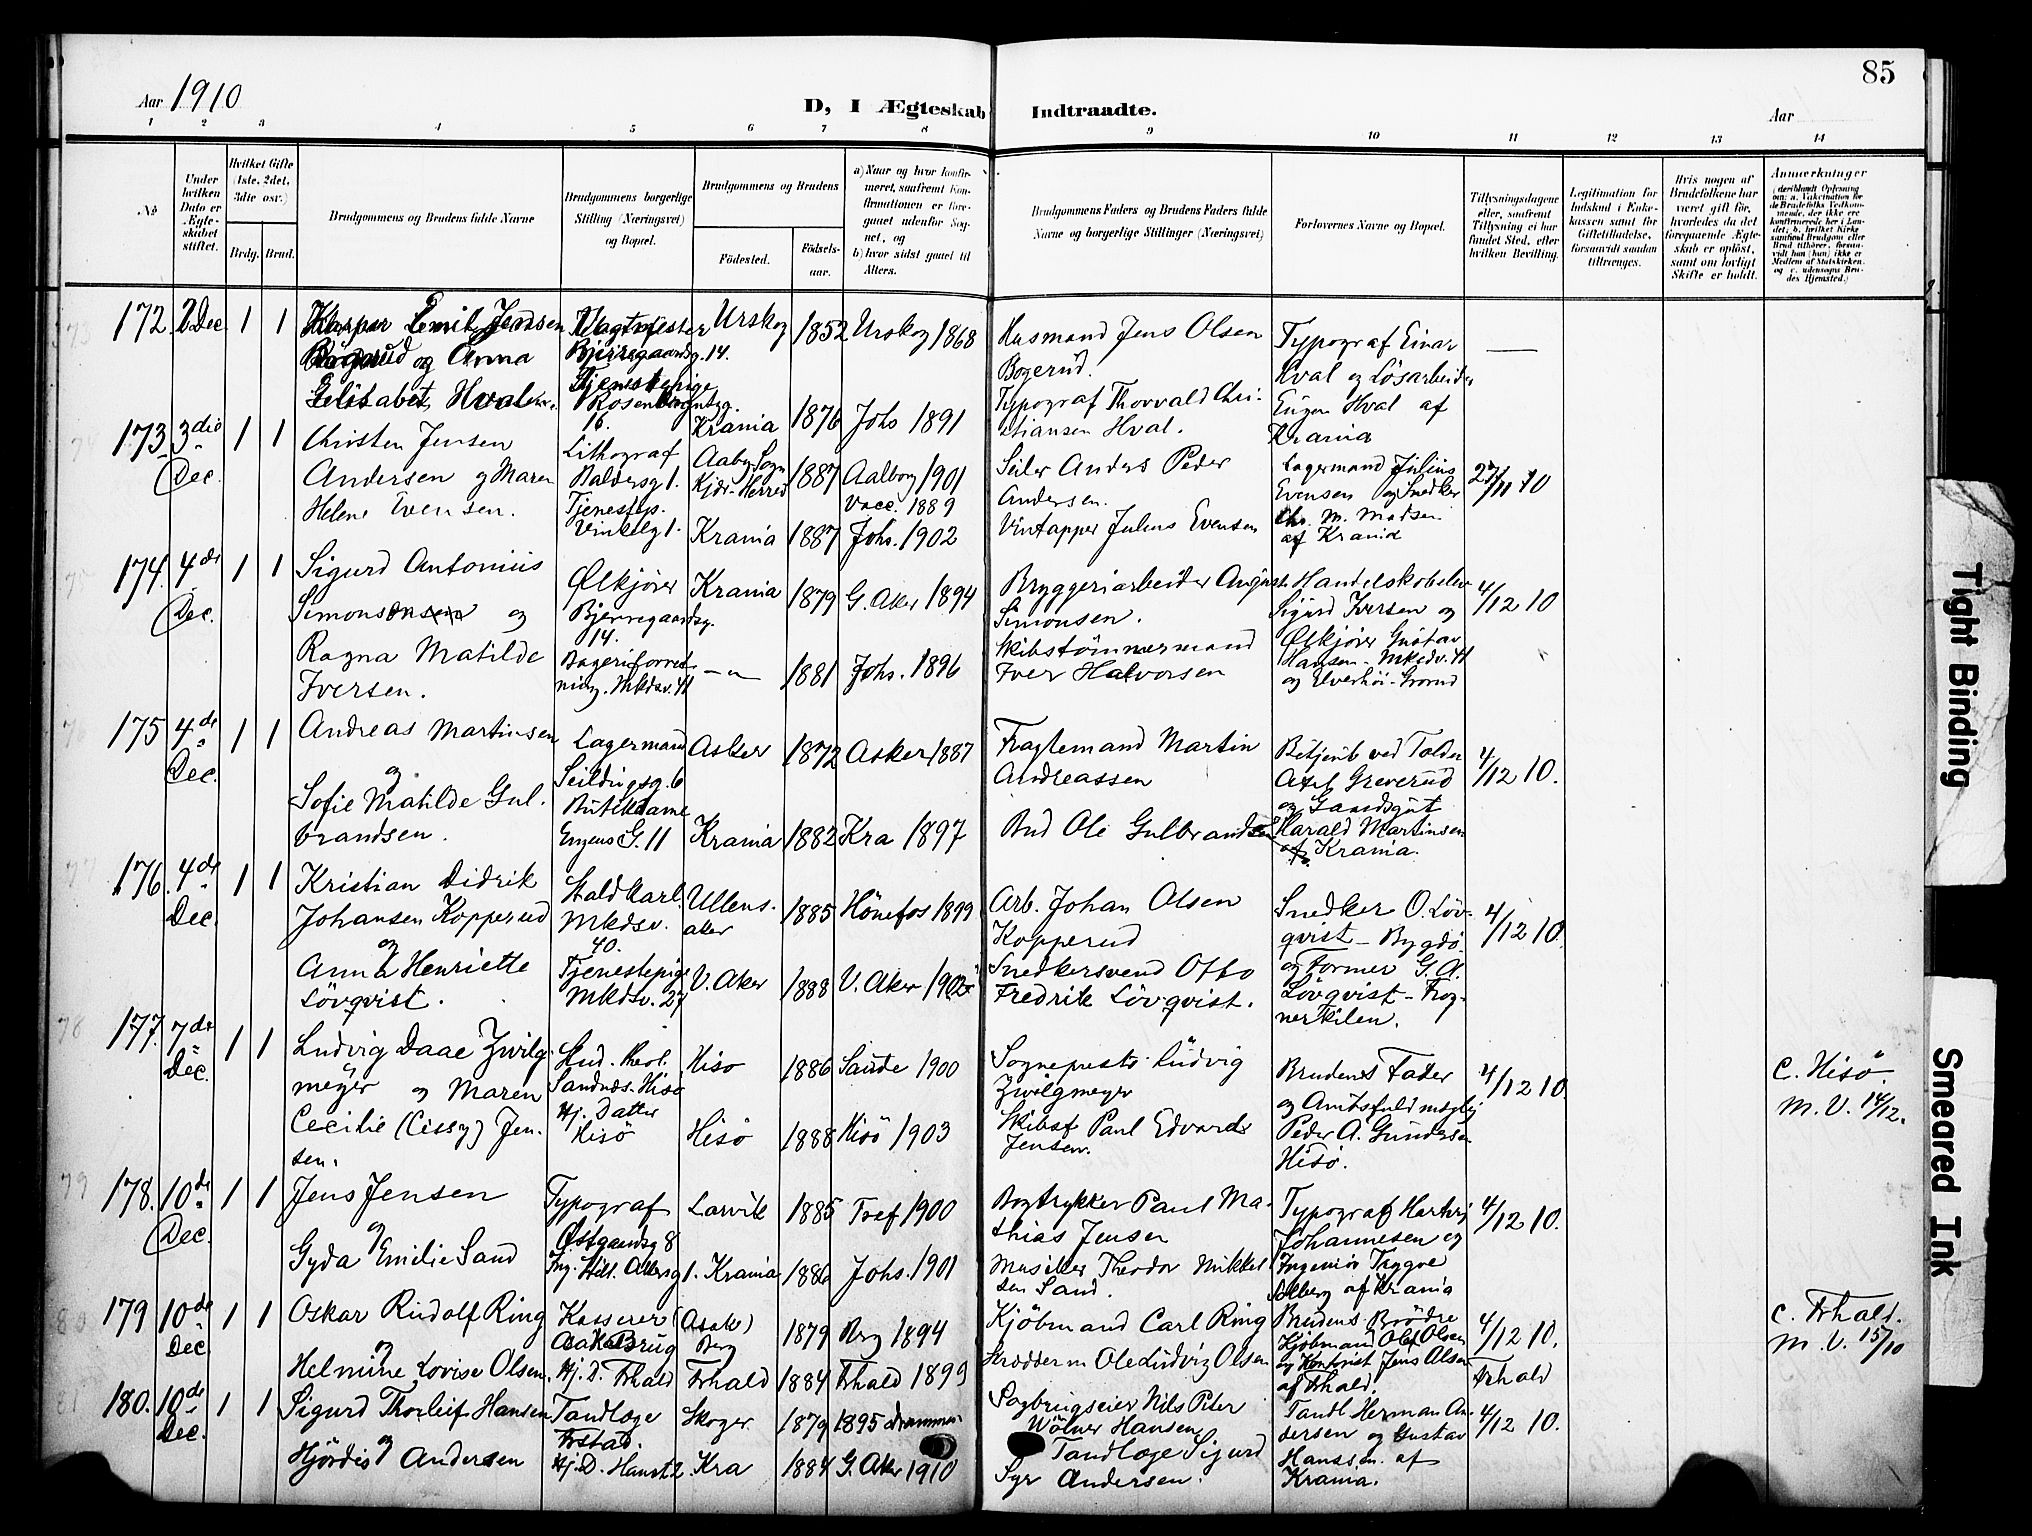 Aar 1910
D, I Ægteskab Indtraadte.
Aar
85
1 2 3 4 5 6 7 8 9 10 11 12 13 14
No
Under hvilken Dato er Ægteskabet stiftet.
Hvilket Gifte (1ste, 2det, 3die osv.)
Brdg. Brud.
Brudgommens og Brudens fulde Navne
Brudgommens borgerlige Stilling (Næringsvei) og Bopæl.
Brudgommens og Brudens
Fødested.
Fødsels-aar.
a) Naar og hvor konfirmeret, saafremt Konfirmationen er foregaaet udenfor Sognet, og
b) hvor sidst gaaet til Alters.
Brudgommens Faders og Brudens Faders fulde Navne og borgerlige Stillinger (Næringsvei)
Forlovernes Navne og Bopæl.
Tillysningsdagene eller, saafremt Tillysning ei har fundet Sted, efter hvilken Bevilling.
Legitimation for Indskud i Enkekassen samt for Giftetilladelse, forsaavidt saadan tiltrænges.
Hvis nogen af Brudefolkene har været gift før, hvorledes da det foregaaende Ægteskab er opløst, samt om lovligt Skifte er holdt.
Anmærkninger
172. 2 Dec. 1 1
Emil Jensen
og Anna
Elisabet Hval
Bjerregaardsg. 14.
Tjenestepige
16.
Urskog 1852 Urskog 1868
Krania 1876 Johs 1891
Husmand Jens Olsen
Bogerud.
Typograf Thorvald Chri-
stiansen Hval.
Typograf Einar
Hval og Løsarbeider
Eugen Hval af
Krania
173. 3die Dec. 1 1
Christen Jensen
Andersen og Maren
Helene Evensen.
Lithograf
Baldersg 1.
Tjenestep.
Aaby Sogn
Kjær-Herred
1887 Aalborg 1901
Vacc. 1889
Krania 1887 Johs. 1902
Seiler Anders Peder
Andersen.
Vintapper Julius Evensen
Lagermand Julius
Evensen og Snedker
Chr. M. Madsen
af Krania
27/11 10
174. 4de Dec. 1 1
Sigurd Antonius
og
Ragna Matilde
Iversen.
Ølkjører
Bjerregaardsg.
14.
Mkdsv. 41
Krania 1879 G. Aker 1894
— " — 1881 Johs. 1896
Bryggeriarbeider August
Simonsen.
Skibstømmermand
Iver Halvorsen
Sigurd Iversen og
Ølkjører Gustav
Hansen - Mkdsv. 41
og Elverhøi - Grorud
4/12 10
175 4de Dec. 1 1
Andreas Martinsen
og
Sofie Matilde Gul-
brandsen.
Lagermand
Seildugsg. 6
Butikdame
Eugens G. 11
Asker 1872 Asker 1887
Krania 1882 Kra 1897
Fragtemand Martin
Andreassen
Bud Ole Gulbrandsen
Betjent ved Tolden
Axel Greverud
og Gaardsgut
Harald Martinsen
af Krania.
4/12 10.
176. 4de Dec. 1 1
Kristian Didrik
Johansen Kopperud
og
Anna Henriette
Lövqvist.
Staldkarl.
Mkdsv.
40.
Tjenestepige
Mkdsv. 27
Ullens-
aker
1885 Hönefos 1899
V. Aker 1888 V. Aker
Arb. Johan Olsen
Kopperud
Snedkersvend Otto
Fredrik Lövqvist.
Snedker O. Löv-
qvist - Bygdö
og Former G. A.
Lövqvist - Frog-
nerkilen.
4/12 10.
177. 7de Dec. 1 1
Ludvig Daae Zwilg-
meyer og Maren
Cecilie (Cissy) Jen-
sen.
Stud. theol.
Sandnæs - Hisö
Hj. Datter
Hisö
Hisö 1886 Saude 1900
Hisö 1888 Hisö 1903
Sogneprest Ludvig
Zwilgmeyer
Skibsf Paul Edvard
Jensen.
Brudens Fader
og Amtsfuldmægtig
Peder A. Gundersen
Hisö.
4/12 10.
C. Hisö.
M. V. 14/12.
178. 10de Dec. 1 1
Jens Jensen
og
Gyda Emilie Sand
Typograf
Østgaardsg 8
Larvik 1885 Tref 1900
Krania 1886 Johs. 1901
Bogtrykker Paul Ma-
thias Jensen
Musiker Theodor Mikkel-
sen Sand.
Typograf Hartvig
Johannesen og
Ingeniör Trygve
Solberg af Krania
4/12 10.
179 10de Dec. 1 1
Oskar Rudolf Ring
og
Helmine Lovise Olsen.
Kasserer
Hj. D. Frhald
(Asak)
Berg
1879 Berg 1894
Frhald 1884 Frhald 1899
Kjöbmand Carl Ring
Skrædderm Ole Ludvig Olsen
Brudens Brödre
Kjöbmand Olaf Olsen
og Kontorist Jens Olsen
af Frhald.
4/12 10.
Frhald
C. Frhald.
M. V. 15/10
180. 10de Dec. 1 1
Sigurd Thorleif Hansen
og
Hjördis Andersen
Tandlæge
Frstad.
Skoger 1879 1895 Drammen
Kra 1884 G. Aker 1910
Sagbrugseier Nils Peter
Wölner Hansen
Tandlæge Sigurd
Syr Andersen.
Tandl Herman An-
dersen og Gustav
Hanssen af
Krania.
4/12 10.
Tight Binding
Smeared Ink